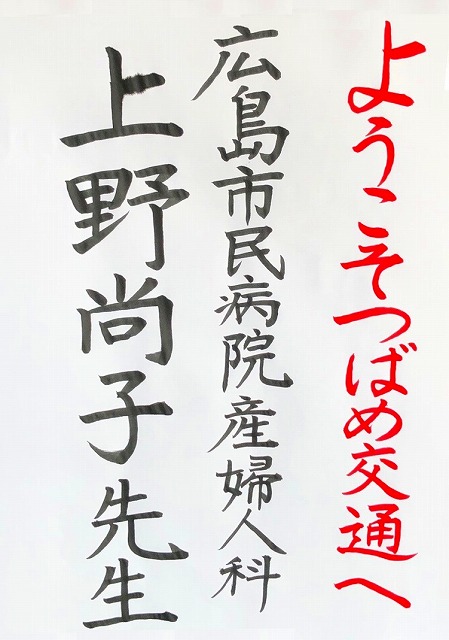 ようこそつばめ交通へ
広島市民病院産婦人科
上野尚子先生